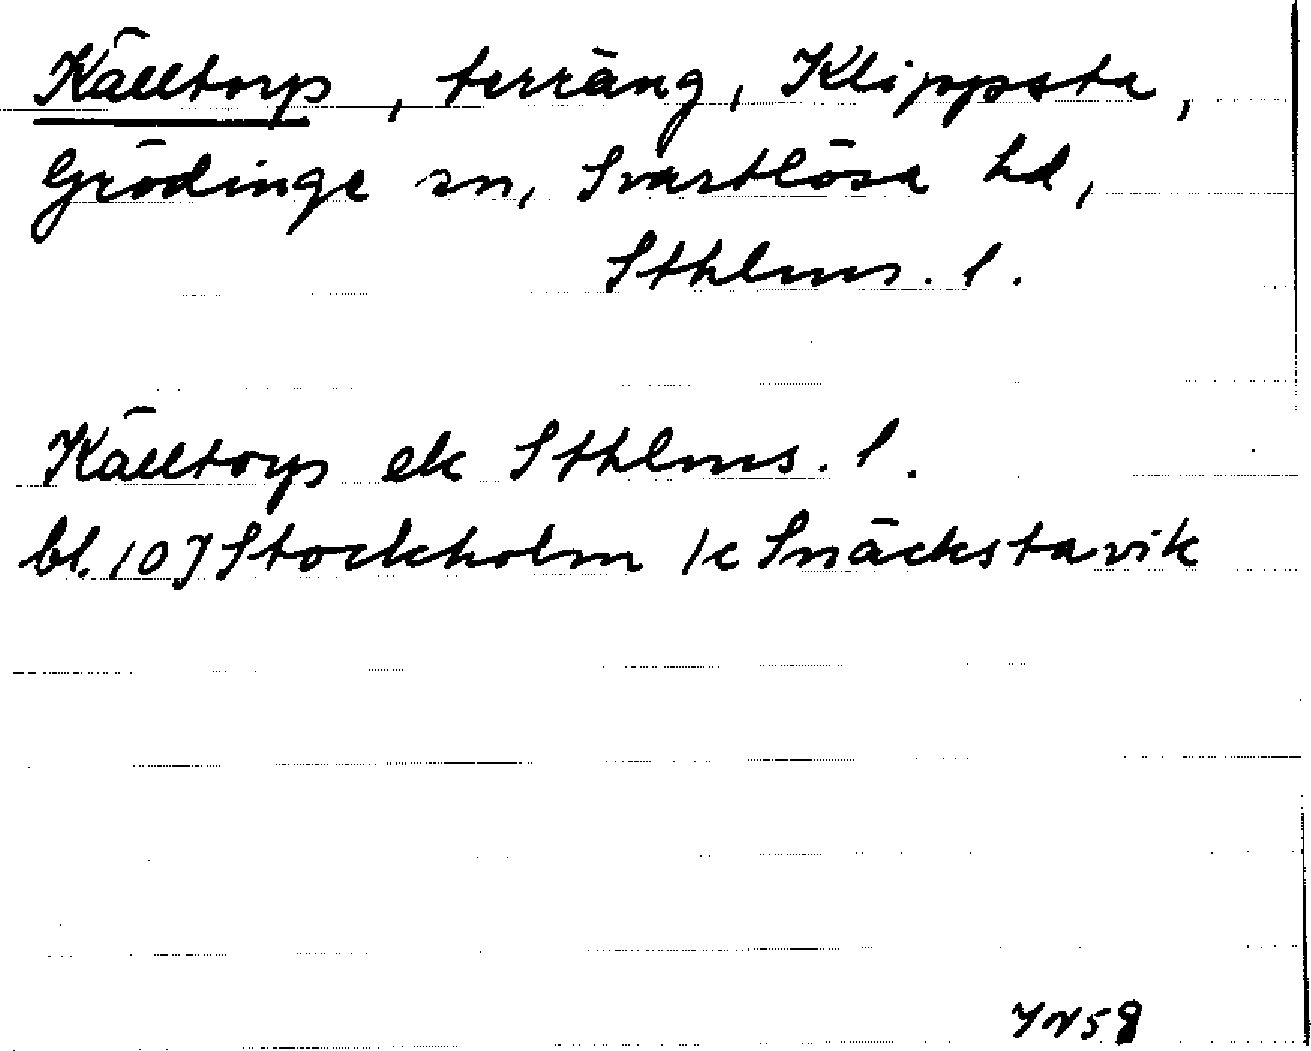 Källtorp, terräng, Klippsta,
Grödinge sn, Svartlösa hd,
Sthlms. l.
Källtorp ek Sthlms. l.
bl. 10J Stockholm 1c Snäckstavik
YN58